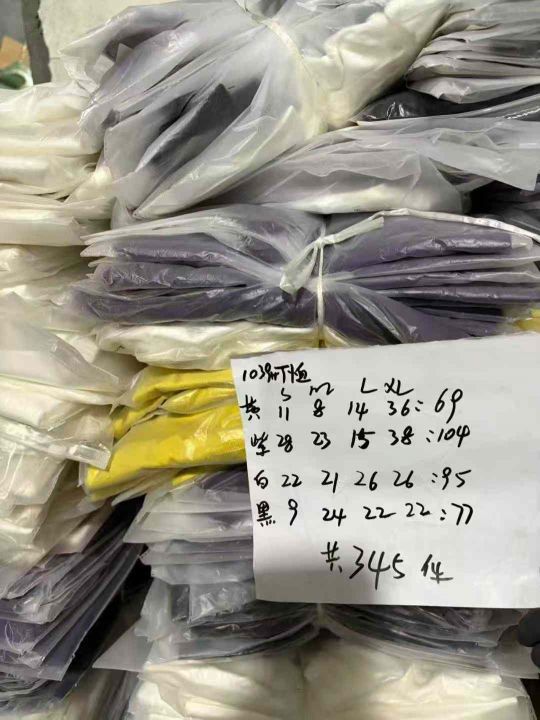 1039#T恤
S M L XL
黄 11 8 14 36:69
紫 28 23 15 38:104
白 22 21 26 26:95
黑 9 24 22 22:77
共345件